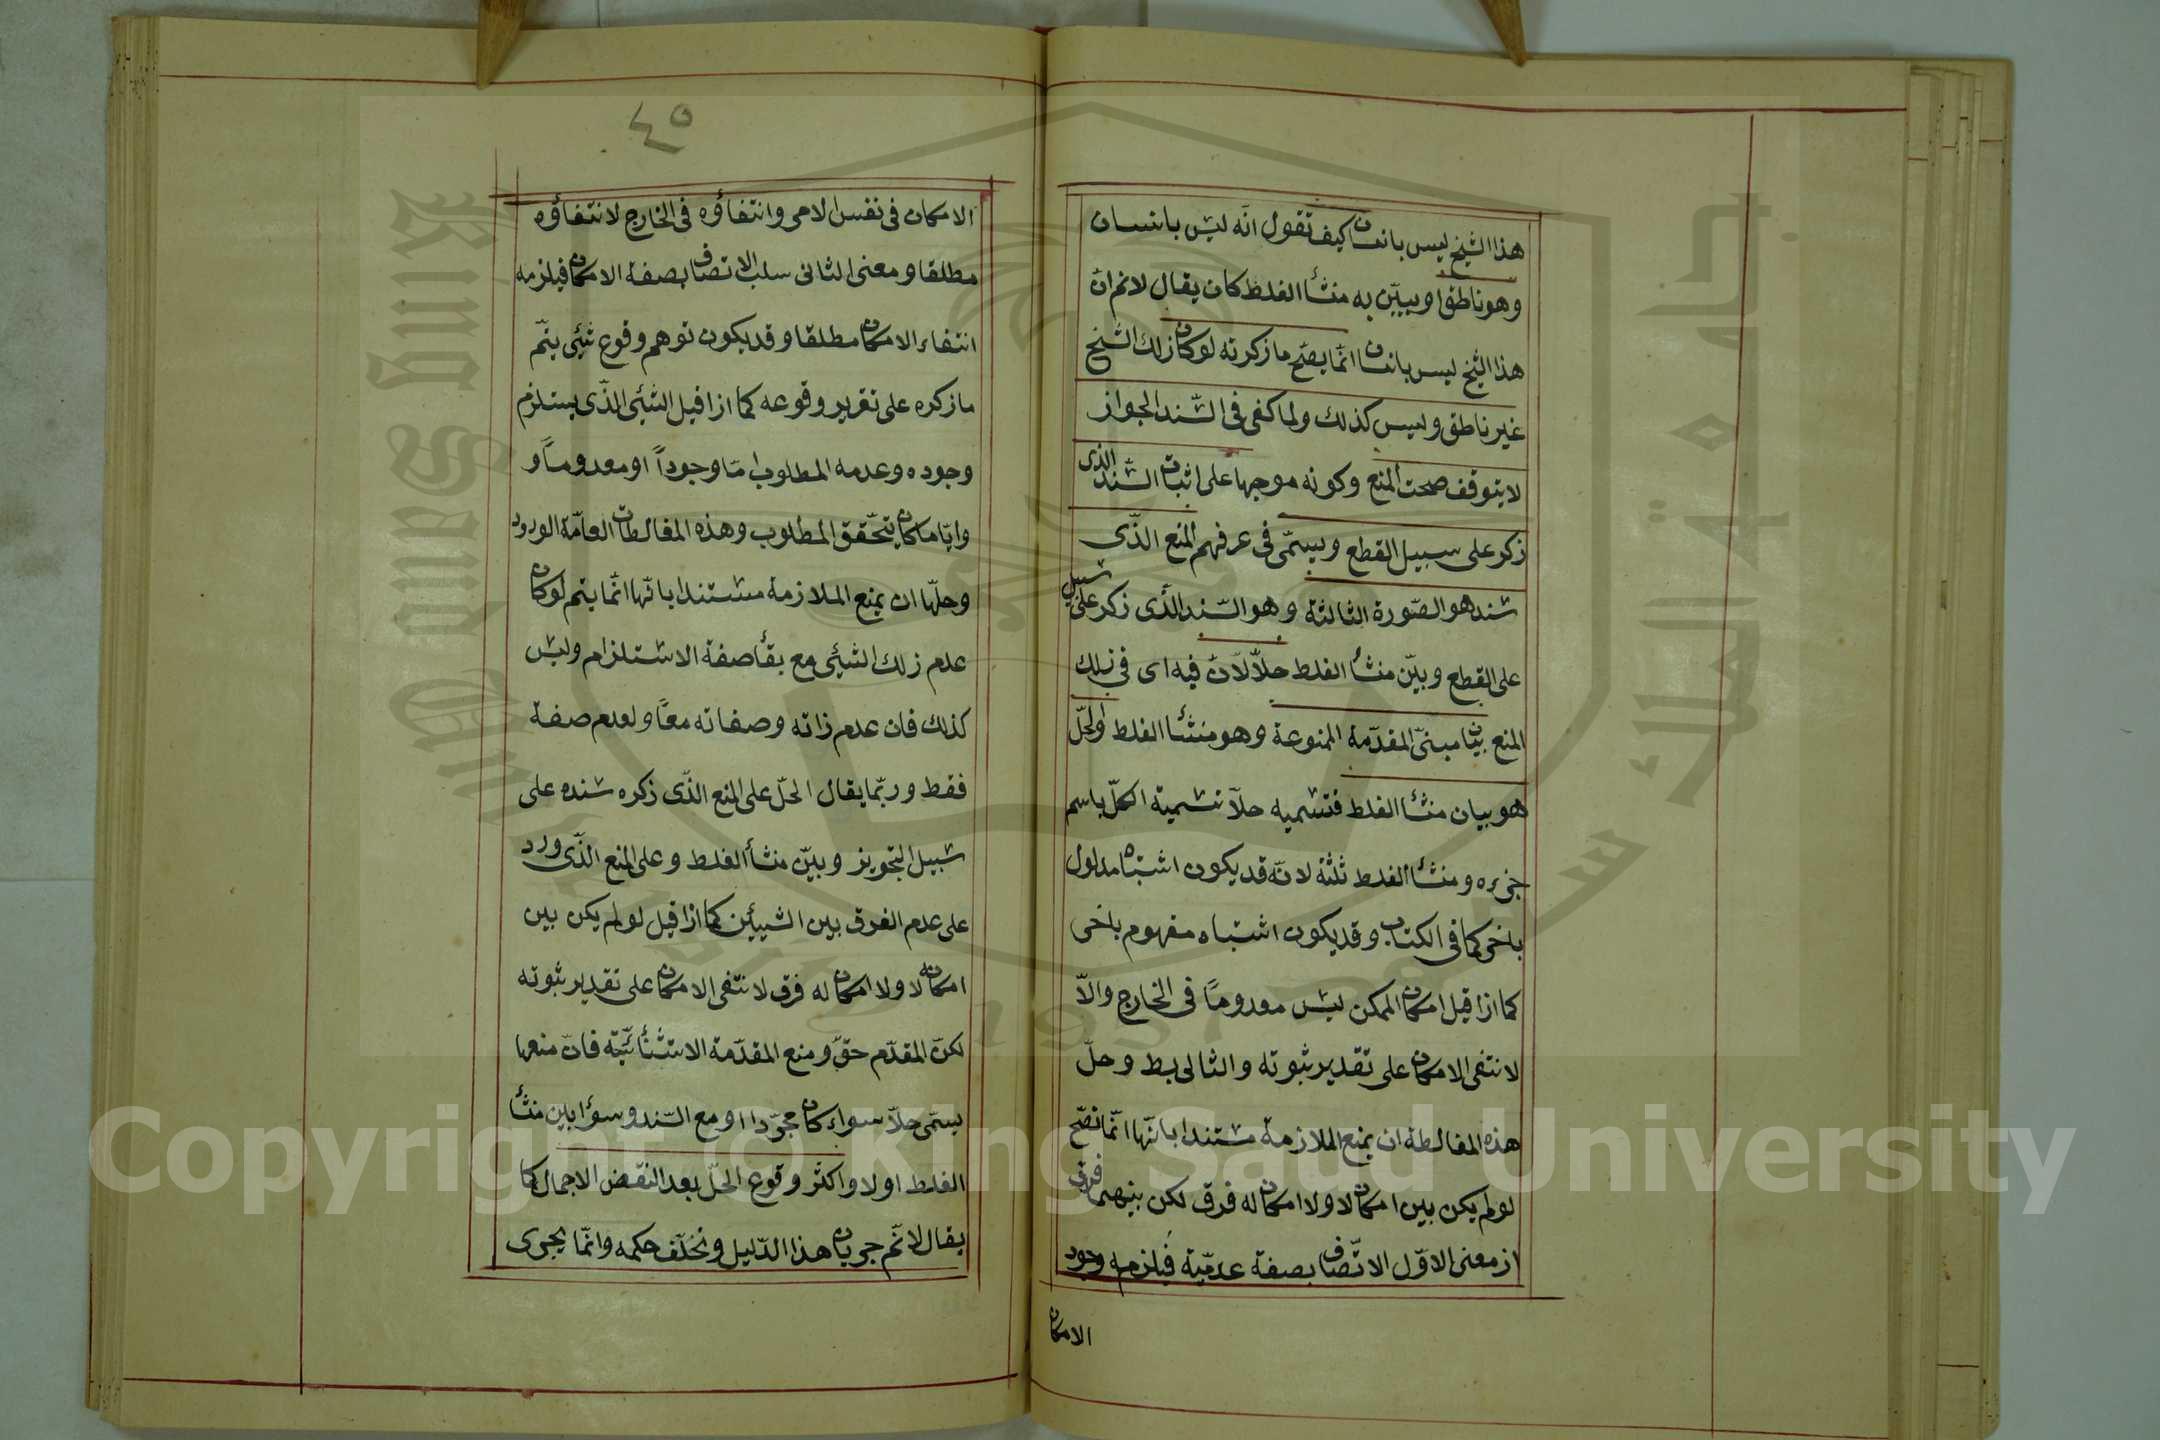 هذا الشيخ ليس بانسان كيف تقول انّه ليس بانسان
وهو ناطق او يبيّن به منشأ الغلط كان يقال لانم انّ
هذا الشيخ ليس بانسان انّما يصحّ ما ذكرته لو كان ذلك الشيخ
غير ناطق وليس كذلك ولما كفى فى السّند الجواز
لا يتوقف صحت المنع وكونه موجها على اثبات السّند الذى
ذكر على سبيل القطع ويسمّى فى عرفهم المنع الذّى
سند هو الصّورة الثالثة وهو السّند الذّى ذكر على سبيل
على القطع وبيّن منشأ الغلط حلّا لانّ فيه اى فى ذلك
المنع بيان مبنىّ المقدّمة الممنوعة وهو منشأ الغلط والحلّ
هو بيان منشأ الغلط فتسميه حلّا تسمية الكلّ باسم
جزءه ومنشأ الغلط ثلثة لانّه قد يكون اشتباه مدلول
باخر كما فى الكتاب وقد يكون اشتباه مفهوم باخر
كما اذا قيل امكان الممكن ليس معدومًا فى الخارج والّا
لانتفى الامكان على تقدير ثبوته والتالى بط وحلّ
هذه المغالطة ان يمنع الملازمة مستندا بانّها انّما تصّح
لو لم يكن بين امكانه لا ولا امكان له فرق لكن بينهما فرق
اذ معنى الاوّل الاتّصاف بصفة عدميّة فيلزمه وجود
الامكان
٤٥
الامكان فى نفس الامر وانتفاؤه فى الخارج لانتفاؤه
مطلقا ومعنى الثانى سلب الاتصاف بصفة الامكان فيلزمه
انتفاء الامكان مطلقا وقد يكون توهم وقوع شئى يتمّ
ما ذكره على تقرير وقوعه كما اذا قيل الشئى الذّى يستلزم
وجوده وعدمه المطلوب امّا وجوداً او معدومًا و
وايّاما كان يتحّقق المطلوب وهذه المغالطات العامّة الورود
وحلّها ان يمنع الملازمة مستندا بانّها انّما يتم لو كان
عدم ذلك الشئى مع بقأ صفة الاستلزام وليس
كذلك فان عدم ذاته وصفاته معًا ولعدم صفة
فقط وربّما يقال الحلّ على المنع الذّى ذكره سنده على
سبيل التجويز وبيّن منشأ الغلط وعلى المنع الذّى ورد
على عدم الفرق بين الشيئين كما اذا قيل لو لم يكن بين
امكانه لا ولا امكان له فرق لانتفى الامكان على تقدير ثبوته
لكنّ المقدّم حقّ ومنع المقدّمة الاستثنائيّة فانّ منعها
يسمّى حلّا سواء كان مجرّدا او مع السّند وسواء بين منشأ
الغلط اولا واكثر وقوع الحلّ بعد النقض الاجمال كما
يقال لانّم جريان هذا الدّليل وتخلّف حكمه وانّما يجرى